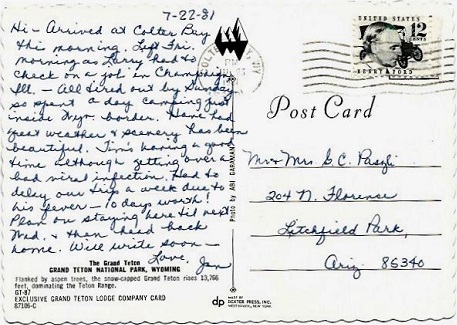 7-22-81
Hi - Arrived at Colter Bay
this morning. Left Fri.
morning as Larry had to
check on a job in Champaign
Ill. - All tired out by Sunday
so spent a day camping just
inside Wyo. border. Have had
great weather & scenery has been
beautiful. Tim's having a good
time although getting over a
bad viral infection. Had to
delay our trip a week due to
his fever - 10 days worth!
Plan on staying here til next
Wed. & then head back
home. Will write soon -
Love,
Jan
The Grand Teton
GRAND TETON NATIONAL PARK, WYOMING
Flanked by aspen trees, the snow-capped Grand Teton rises 13,766
feet, dominating the Teton Range.
GT-87
EXCLUSIVE GRAND TETON LODGE COMPANY CARD
87106-C
Photo by ABI GARAMAN
dp
MADE BY
DEXTER PRESS, INC.
WEST NYACK, NEW YORK
PM
UNITED STATES
12
CENTS
HENRY FORD
Post Card
Mr & Mrs G. C.
204 N. Florence
Litchfield Park,
Ariz 85340